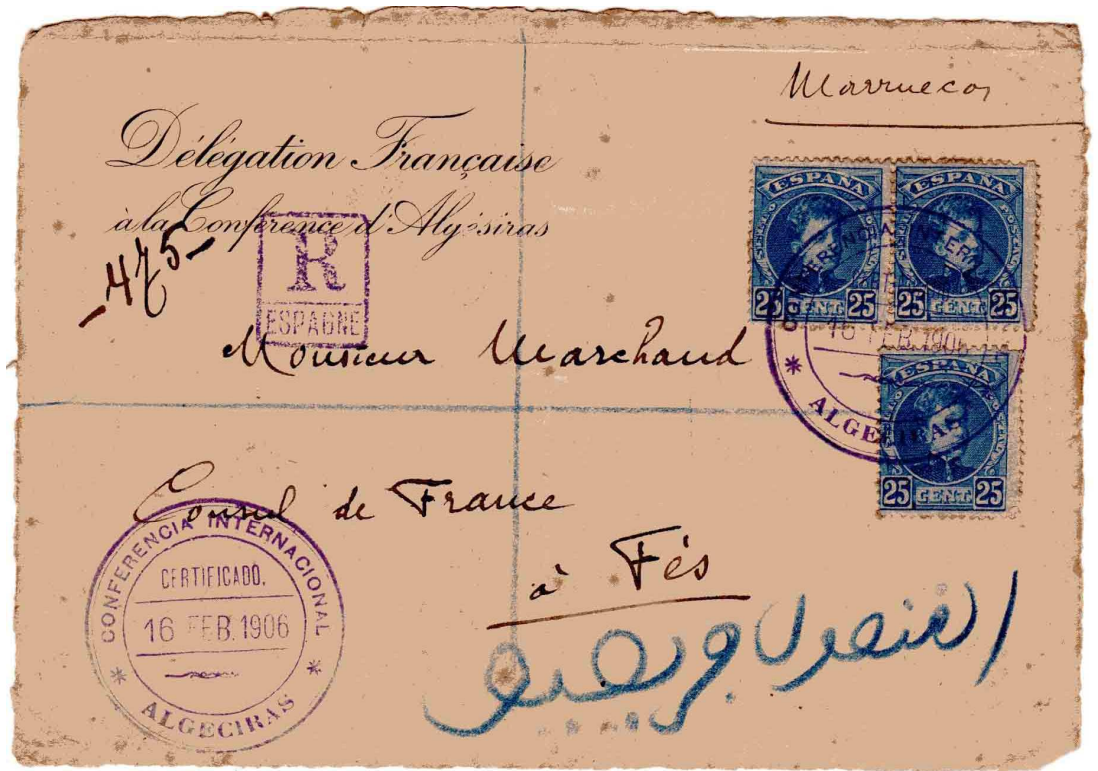 Marruecos
Délégation Française
à la Conférence d'Algésiras
-475-
R
ESPAGNE
ESPAÑA
25 CENT. 25
ESPAÑA
25 CENT. 25
ESPAÑA
25 CENT. 25
16 FEB. 1906
ALGECIRAS
Monsieur Marchand
Consul de France
à Fés
CONFERENCIA INTERNACIONAL
CERTIFICADO.
16 FEB. 1906
ALGECIRAS